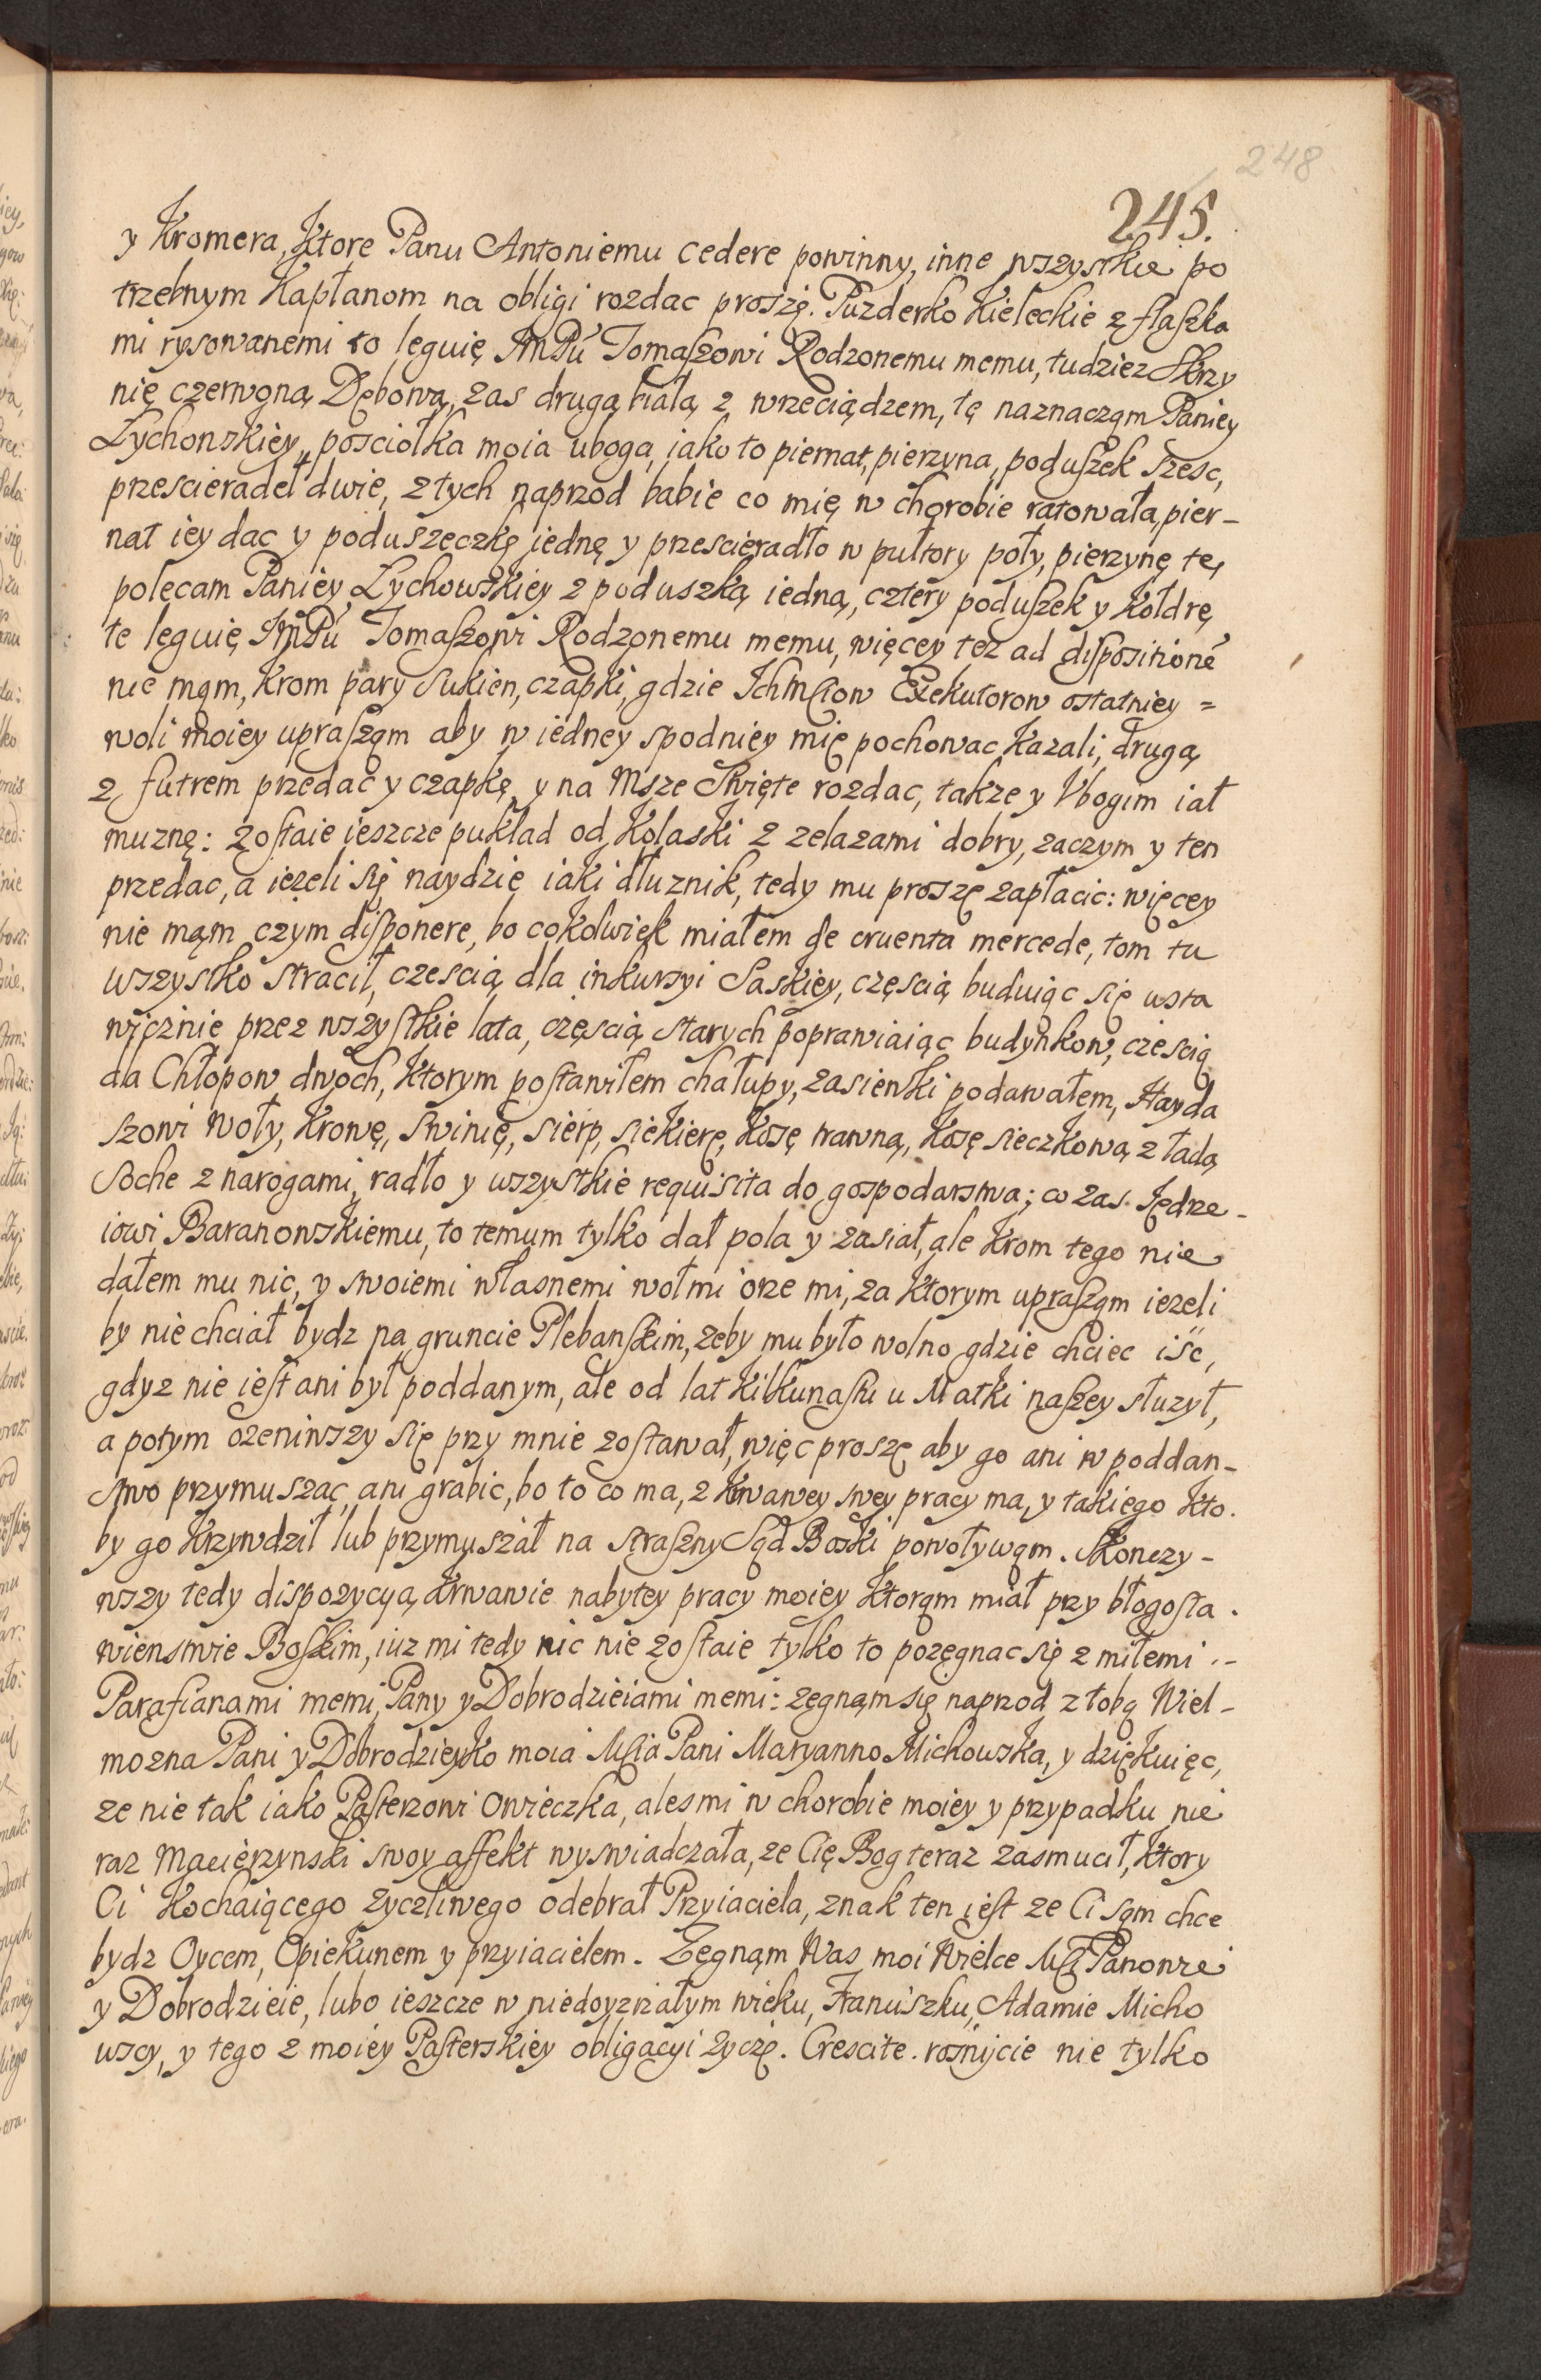 248
245.
y Kromera, Ktore Panu Antoniemu cedere powinny, inne wszystkie po
trzebnym Kapłanom na obligi rozdac proszę. Puzderko Kieleckie z flaszka
mi rysowanemi to leguię JmPu Tomaszowi Rodzonemu memu, tudziez Skrzy
nię czerwoną Dębową, zas drugą białą z wrzeciądzem, tę naznacząm Paniey
Zychonskiey, posciołka moia uboga, iako to piernat, pierzyna, poduszek szesc,
przescieradeł dwie, z tych naprzod babie co mię w chorobie ratowała, pier-
nat iey dac y poduszeczkę iednę y przescieradło w pułtory poły, pierzynę tę,
polecam Paniey Zychowskiey z poduszką iedną, cztery poduszek y Kołdrę,
te leguię JmPu Tomaszowi Rodzonemu memu, więcey tez ad dispositionē
nie mąm, krom pary Sukien, czapki, gdzie Ichmciow Exekutorow ostatniey =
woli moiey uprasząm aby w iedney spodniey mię pochowac kazali, drugą
z futrem przedac y czapkę, y na Msze Swięte rozdac, takze y Vbogim iał
muznę: zostaie ieszcze pukład od Kolaski z zelazami dobry, zaczym y ten
przedac, a iezeli się naydzie iaki dłuznik, tedy mu proszę zapłacic: więcey
nie mąm czym disponere, bo cokolwiek miałem de cruenta mercede, tom tu
wszystko stracił, czescią dla inkursyi Saskiey, częscią buduiąc się usta
wicznie przez wszystkie lata, częscią starych poprawiaiąc budynkow, czescią
dla Chłopow dwoch, Ktorym postawiłem chałupy, zasienki podawałem, Hayda
szowi woły, Krowę, swinię, sierp, siekierę, Kosę trawną, Kosę sieczkową z ładą
Soche z narogami, radło y wszystkie requisita do gospodarstwa; co zas Jędrze-
iowi Baranowskiemu, to temum tylko dał pola y zasiał, ale Krom tego nie
dałem mu nic, y swoiemi własnemi wołmi orze mi, za Ktorym uprasząm iezeli
by nie chciał bydz na gruncie Plebanskim, zeby mu było wolno gdzie chciec iść,
gdyz nie iest ani był poddanym, ale od lat Kilkunastu u Matki naszey słuzył,
a potym ozeniwszy się przy mnie zostawał, więc proszę aby go ani w poddan-
stwo przymuszac, ani grabic, bo to co ma, z krwawey swey pracy ma, y takiego kto.
by go Krzywdził lub przymuszał na straszny Sąd Boski powoływąm. Skonczy-
wszy tedy dispozycyą Krwawie nabytey pracy moiey Ktorąm miał przy błogosła.
wienstwie Boskim, iuz mi tedy nic nie zostaie tylko to pozęgnac się z miłemi
Parafianami memi, Pany y Dobrodzieiami memi: zęgnąm się naprzod z tobą Wiel-
mozna Pani y Dobrodzieyko moia Mcia Pani Maryanno Michowska, y dziękuięc,
ze nie tak iako Pasterzowi Owieczka, ales mi w chorobie moiey y przypadku nie
raz Macierzynski swoy affekt wyswiadczała, ze Cię Bog teraz zasmucił, Ktory
Ci Kochaiącego zyczliwego odebrał Przyiaciela, znak ten iest ze Ci sąm chce
bydz Oycem, Opiekunem y przyiacielem. Zegnąm Was moi Wielce Mci Panowie
y Dobrodzieie, lubo ieszcze w niedoyzrzałym wieku, Franuszku, Adamie Micho
wscy, y tego z moiey Pasterskiey obligacyi zyczę. Crescite. rosniycie nie tylko